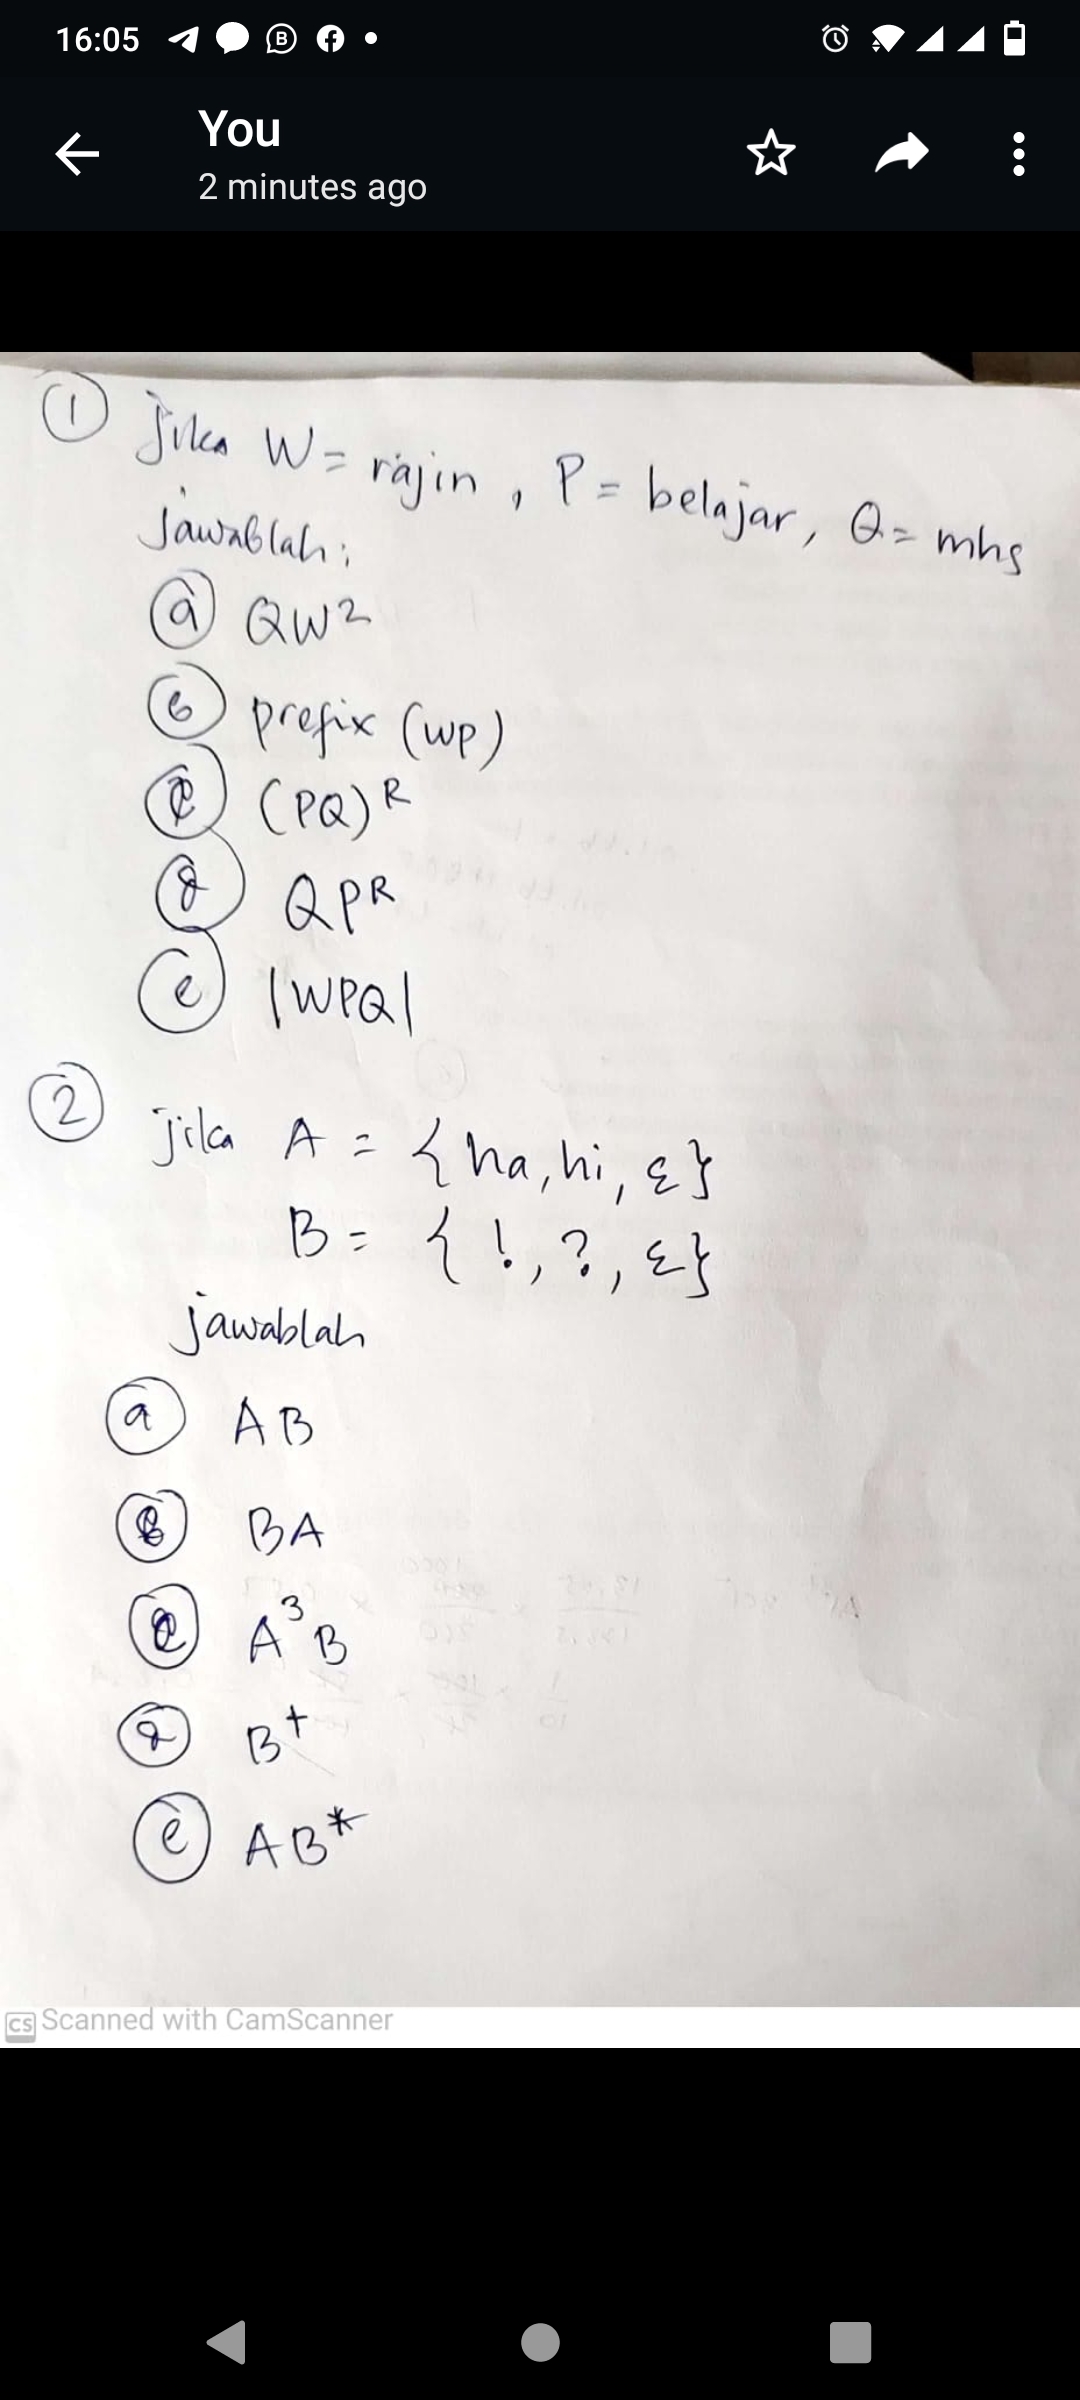 16:05
You
2 minutes ago
1 jika W = rajin, P = belajar, Q = mhs
jawablah:
a QW²
b prefix (WP)
c (PQ)ᴿ
d QPᴿ
e |WPQ|
2 jika A = {ha, hi, ε}
B = {!, ?, ε}
jawablah
a AB
b BA
c A³B
d B⁺
e AB*
CS Scanned with CamScanner